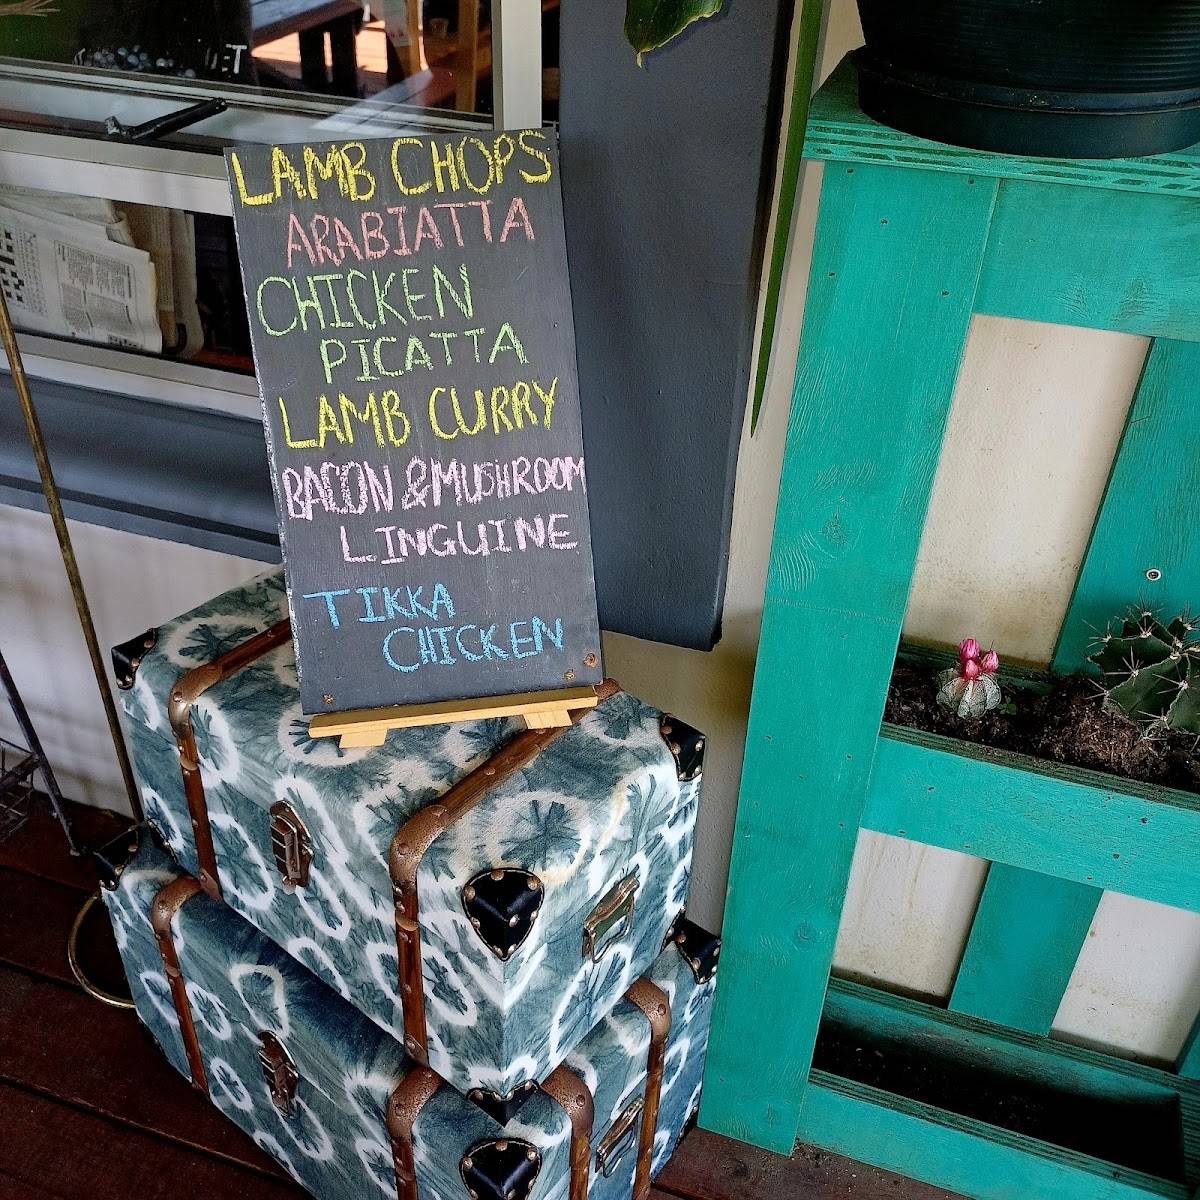 LAMB CHOPS
ARABIATTA
CHICKEN
PICATTA
LAMB CURRY
BACON & MUSHROOM
LINGUINE
TIKKA
CHICKEN